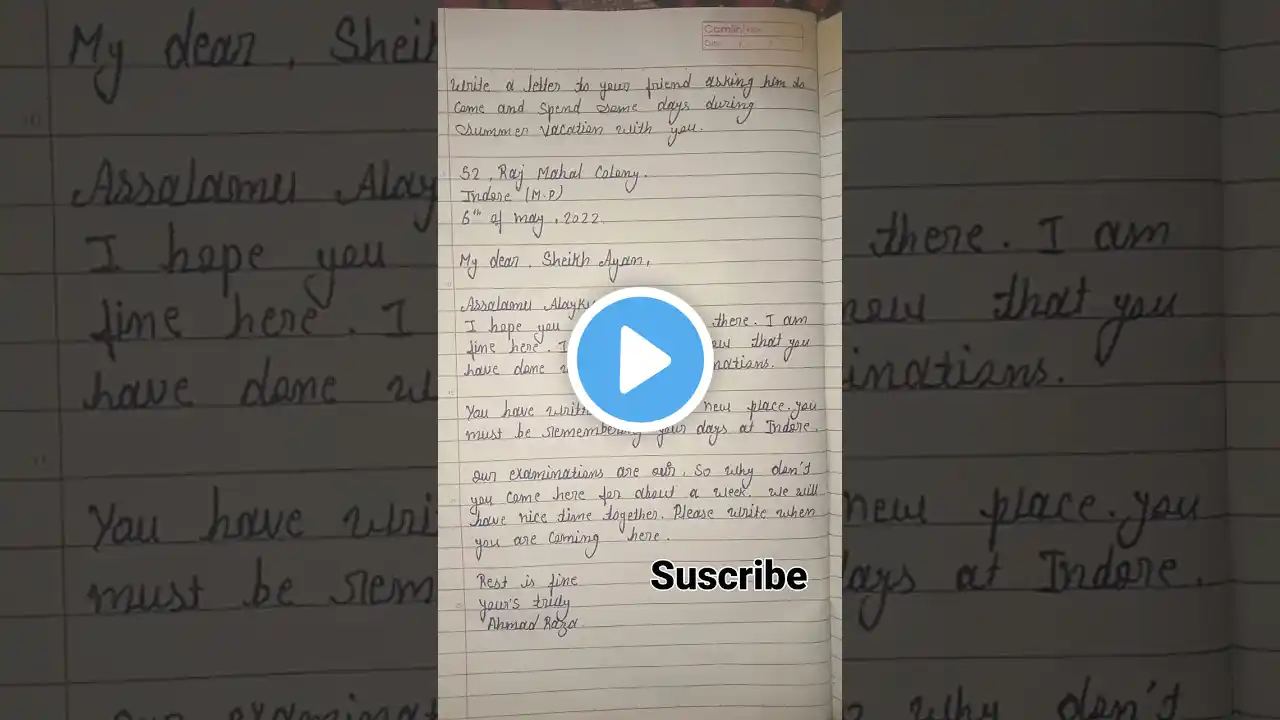 Camlin
Date
Write a letter to your friend asking him to
Come and Spend some days during
Summer vacation with you.
52, Raj Mahal Colony.
Indore (M.P)
6th of may, 2022.
My dear, Sheikh Ayan,
Assalamu Alayku
I hope you there. I am
fine here. I that you
have done inations.
You have new place. you
must be remembering your days at Indore.
Our examinations are our. So why don't
you come here for about a week. we will
have nice time together. Please write when
you are coming here.
Rest is fine
your's truly
Ahmad Raza
Suscribe